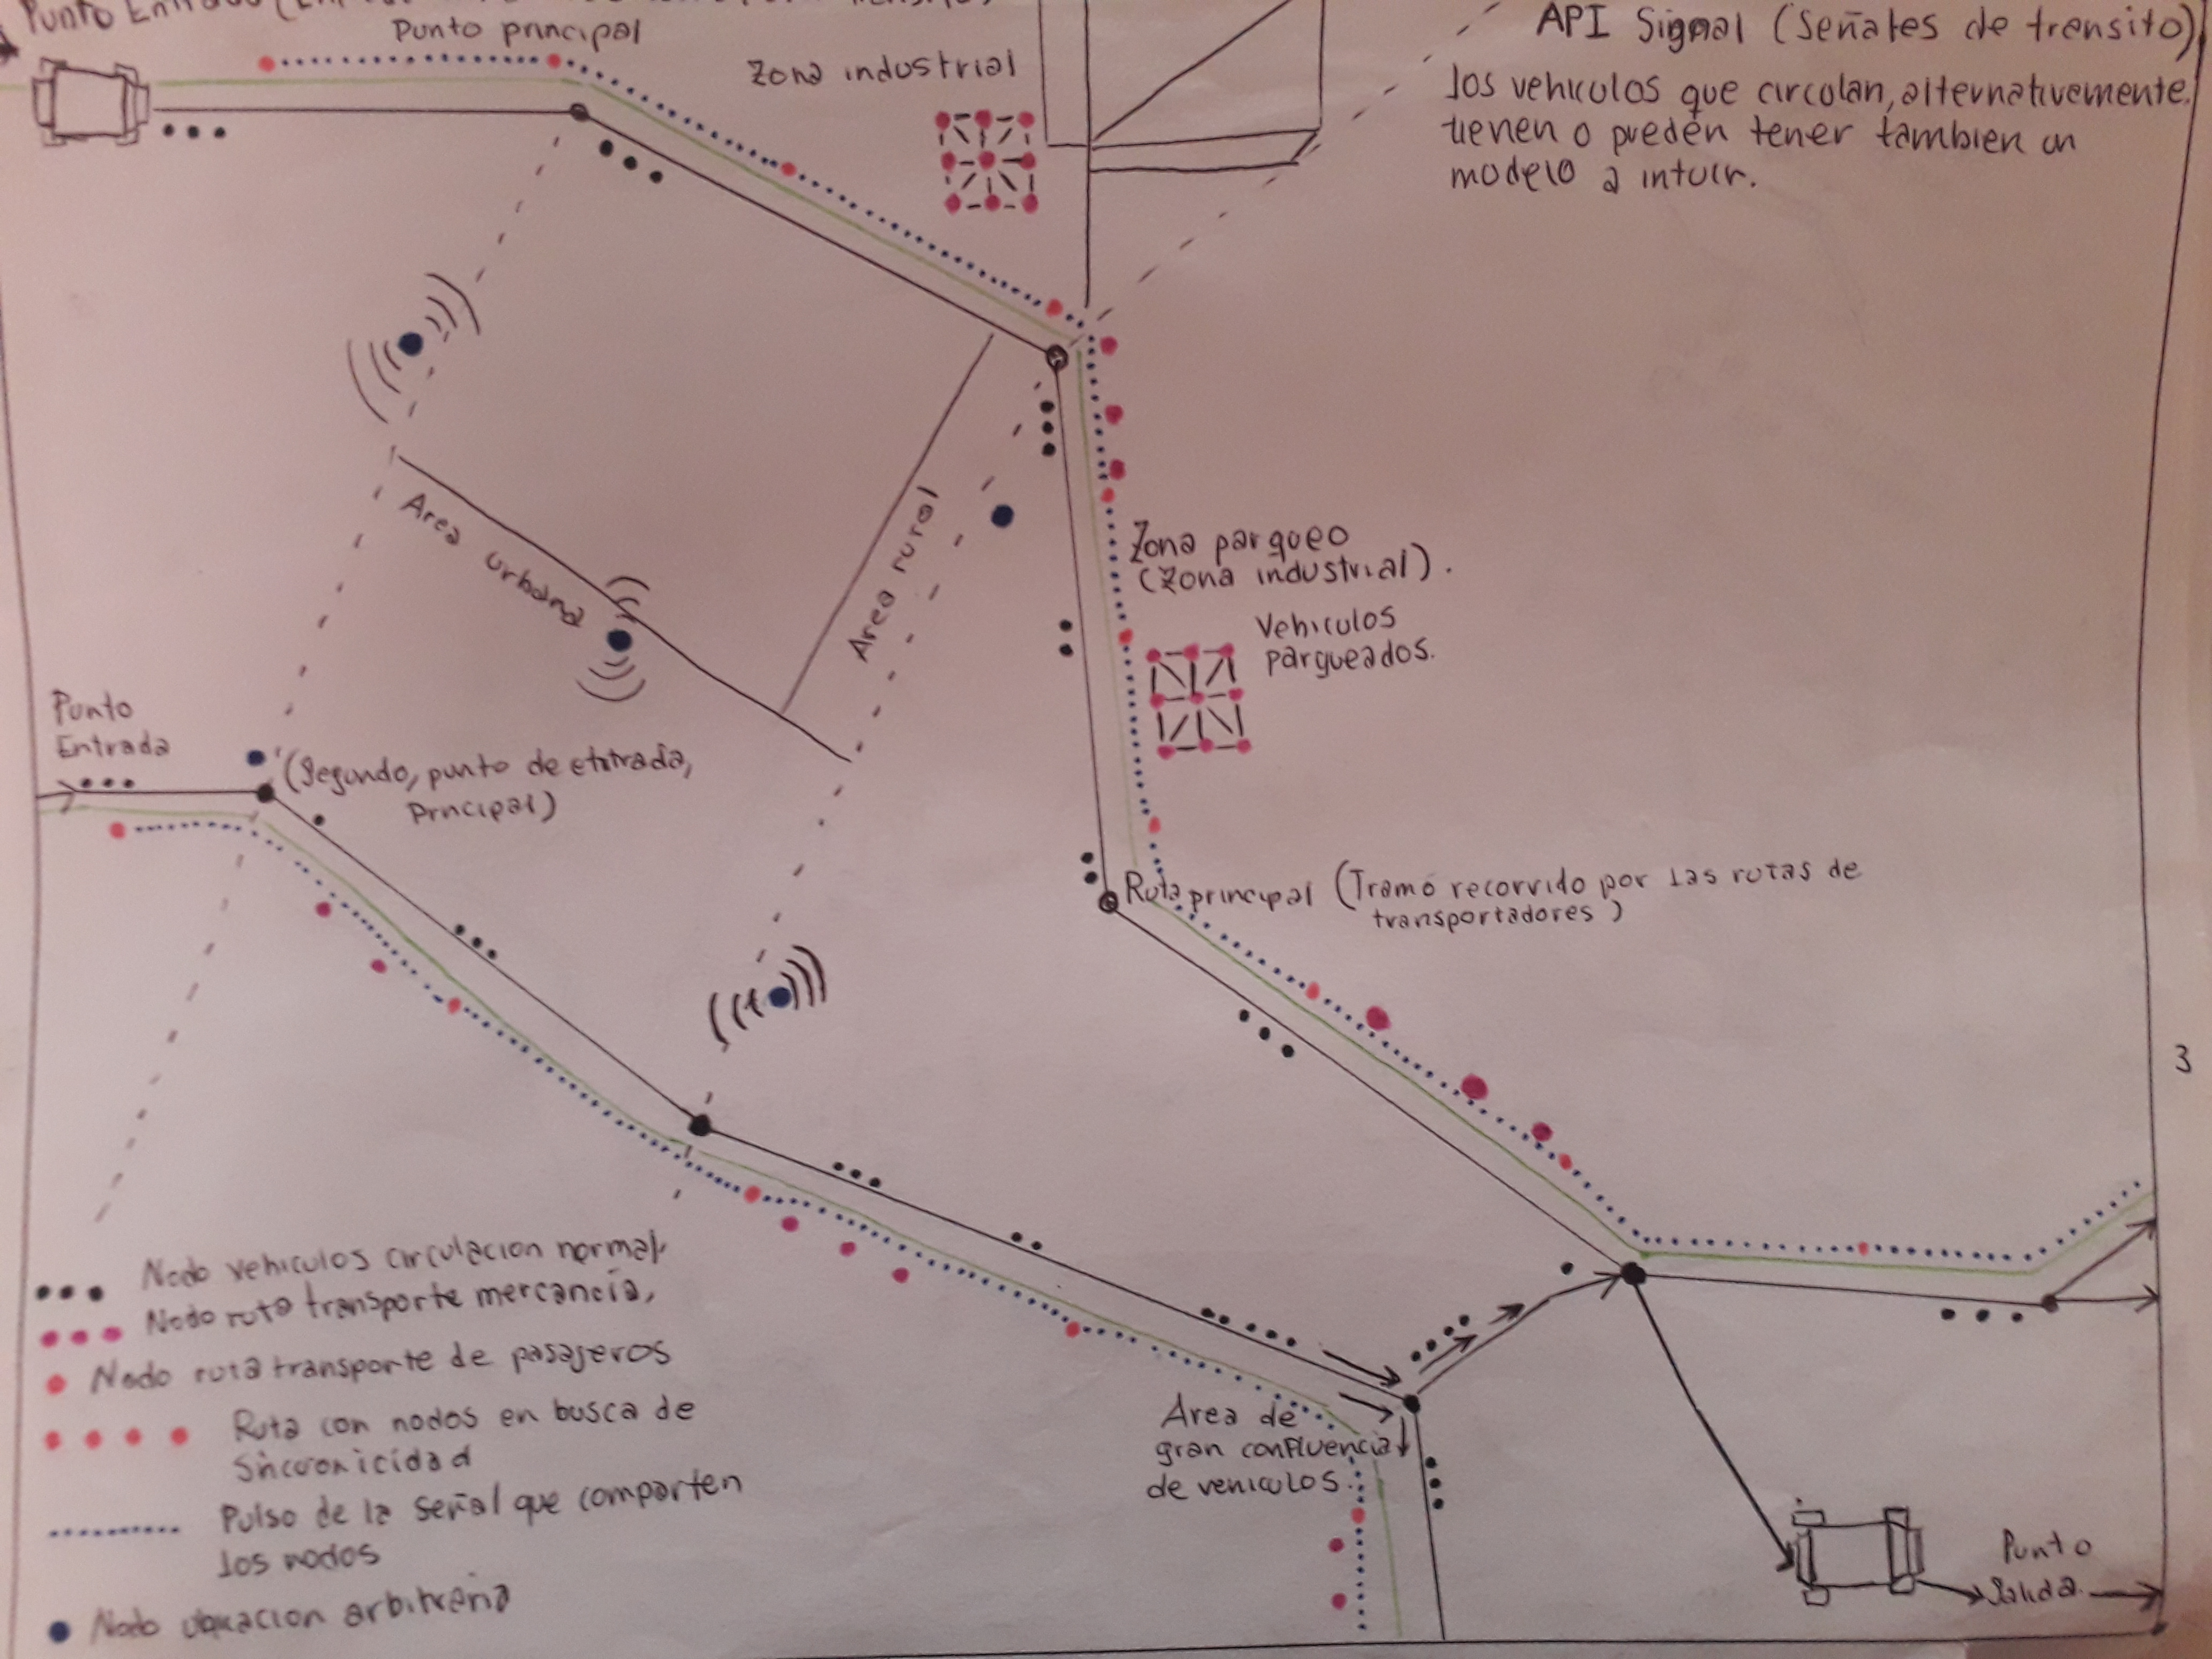 Punto Entrada
Punto principal
Zona industrial
API Signal (Señales de trensito)
los vehiculos que circolan, alternativemente
tienen o pueden tener tambien un
modelo a intuir.
Area urbana
Area rural
Zona parqueo
(Zona industrial).
Vehiculos
parqueados.
Punto
Entrada
(Segundo, punto de entrada,
Principal)
Ruta principal (Tramo recorrido por las rutas de
transportadores)
3
Nodo vehiculos circulacion normal,
Nodo ruta transporte mercancia,
Nodo ruta transporte de pasajeros
Ruta con nodos en busca de
Sincronicidad
Pulso de la señal que comparten
los nodos
Nodo ubicacion arbitraria
Area de
gran confluencia
de vehiculos.
Punto
Salida.